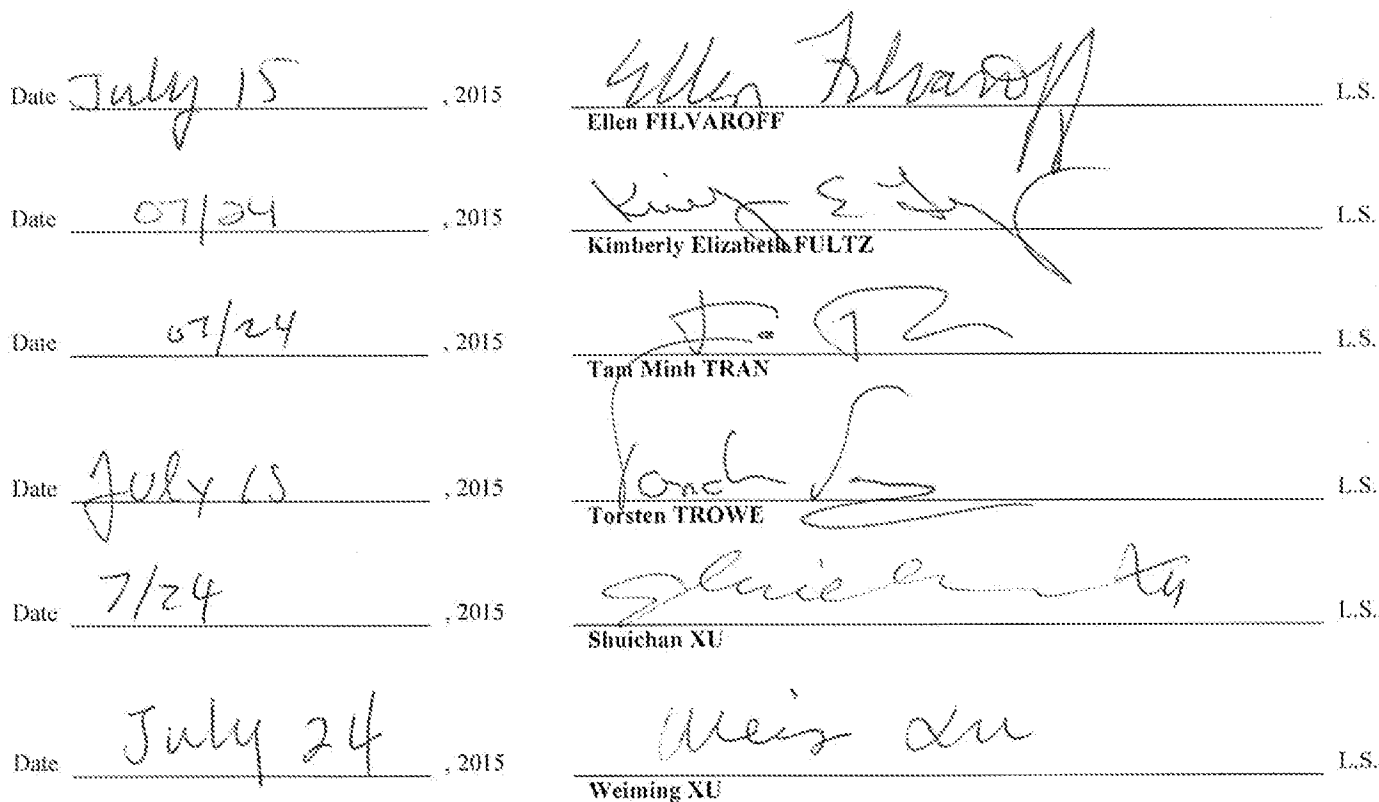 Date July 15 , 2015 Ellen Filvaroff L.S.
Ellen FILVAROFF
Date 07/24 , 2015 L.S.
Kimberly Elizabeth FULTZ
Date 07/24 , 2015 L.S.
Tam Minh TRAN
Date July 15 , 2015 L.S.
Torsten TROWE
Date 7/24 , 2015 L.S.
Shuichan XU
Date July 24 , 2015 L.S.
Weiming XU